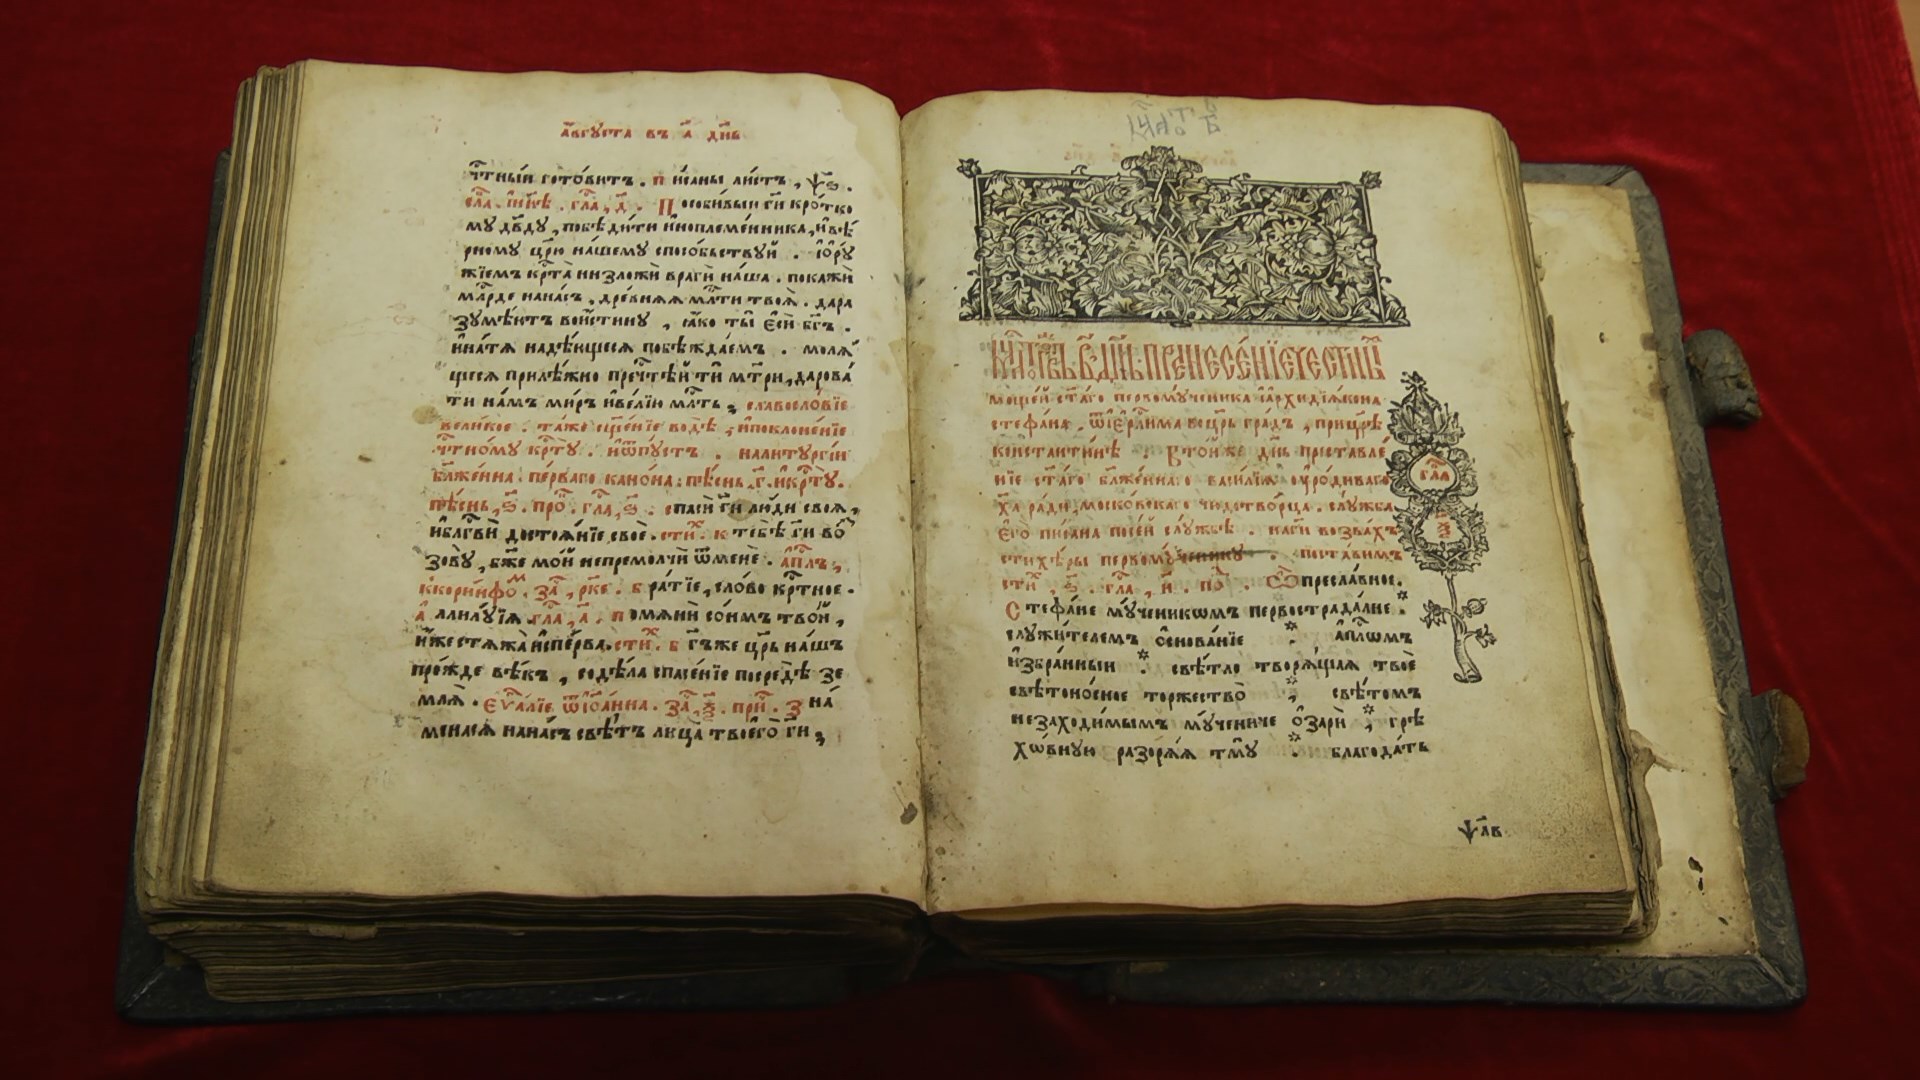 а҆́вгꙋста въ а҃ дн҃ь
чⷭ҇тный готовитъ . п и́саны ли́стъ , ѱ҃ѕ .
сла́, и҆ нн҃ѣ . гла́, д҃ . П особивыи гд҃и кро́тко
мꙋ дв҃дꙋ , побѣди́ти и҆ноплеме́нника , и҆ вѣ́
рномꙋ цр҃ю на́шемꙋ спосо́бьствꙋй . и҆ ѻ҆рꙋ́
жїемъ крⷭ҇та̀ низложѝ врагѝ на́ша . покажѝ
млⷭ҇рде на на́съ , дре́вняя млⷭ҇ти твоя̀ . да ра
зꙋмѣ́ютъ вои́стинꙋ , ꙗ҆́ко ты̀ є҆сѝ бг҃ъ .
и҆ на тя̀ надѣ́ющеся побѣжда́емъ . моля́
щеся прилѣ́жно пречⷭ҇тѣ́й ти мт҃ри , дарова́
ти на́мъ ми́ръ и҆ ве́лїю млⷭ҇ть , славосло́вїе
вели́кое . та́же ѡ҆сщ҃е́нїе водѣ̀ , и҆ поклоне́нїе
чⷭ҇тно́мꙋ крⷭ҇тꙋ̀ . и҆ ѿпꙋстъ . на литꙋргі́и
блаже́нна . пе́рваго кано́на . пѣ́снь, г҃ . и҆ крⷭ҇тꙋ̀ .
пѣ́снь, ѕ҃ . про́ . гла́, ѕ҃ . с пасѝ гд҃и лю́ди своя̀ ,
и҆ блг҃вѝ достоя́нїе своѐ . сти́х . к тебѣ̀ гд҃и во
зовꙋ̀ , бж҃е мо́й не премолчѝ ѿ менѐ . а҆пⷭ҇лъ ,
к корі́нѳом . за́, рке . б ра́тїе , сло́во крⷭ҇тное .
а҆ ллилꙋ́їя . гла́, а҃ . п омянѝ со́нмъ тво́й ,
и҆́же стяжа̀ и҆спе́рва . сти́х . б г҃ъ же цр҃ь на́шъ
пре́жде вѣ́къ , содѣ́ла спасе́нїе посредѣ̀ зе
мля̀ . є҆ѵⷢ҇лїе ѿ і҆ѡа́нна . за́, ѯ҃ . при́ . З на́
менася на на́съ свѣ́тъ лица̀ твоего̀ гд҃и ,
мцⷭ҇а тогⷤ въ в҃ дн҃ь . пренесе́нїе честны́хъ
мощей ст҃а́го первомꙋ́ченика и҆ а҆рхидїа́кона
стефа́на , ѿ і҆ер҃ли́ма во цр҃ь гра́дъ , при цр҃ѣ̀
константи́нѣ . В то́й же дн҃ь преставле́
нїе ст҃а́го бл҃же́ннаго васи́лїа ю҆ро́диваго
ха̀ ра́ди , моско́вскаго чюдотво́рца . слꙋ́жба
є҆го̀ пи́сана по се́й слꙋ́жбѣ . на гд҃и воззва́хъ
стихѣ́ры первомꙋ́ченикꙋ . поста́вимъ
сти́х , ѕ҃ . гла́ , и҃ . по́д . Ѽ пресла́вное .
С тефа́не мꙋ́ченикомъ первострада́лне
слꙋжи́телемъ ѡ҆снова́нїе а҆пⷭ҇лѡмъ
и҆збра́нныи свѣ́тло творя́щая твоѐ
свѣтоно́сное торжество̀ , свѣ́томъ
незаходи́мымъ мꙋ́чениче ѡ҆зарѝ , грѣ
хо́внꙋю разоря́я тмꙋ̀ . благода́ть
гла́
и҃
ѱ҃лв